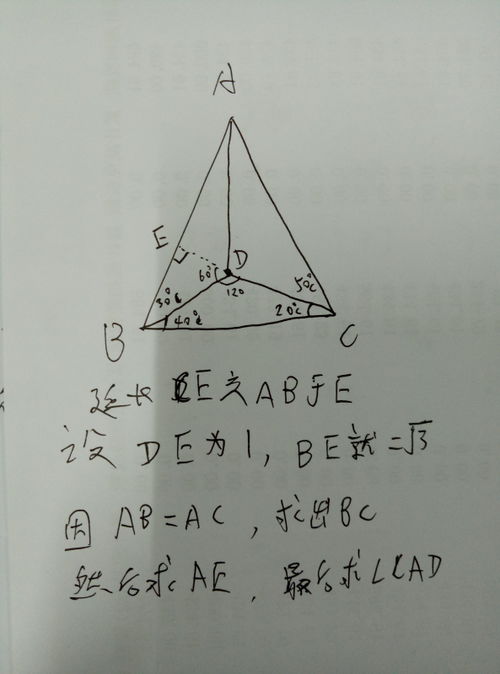 A
E
D
60°
120
50°C
30°C
40°C
20°C
B
C
延长 CE交AB于E
设 DE为1, BE就=√3
因 AB=AC, 求出BC
然后求AE, 最后求∠CAD